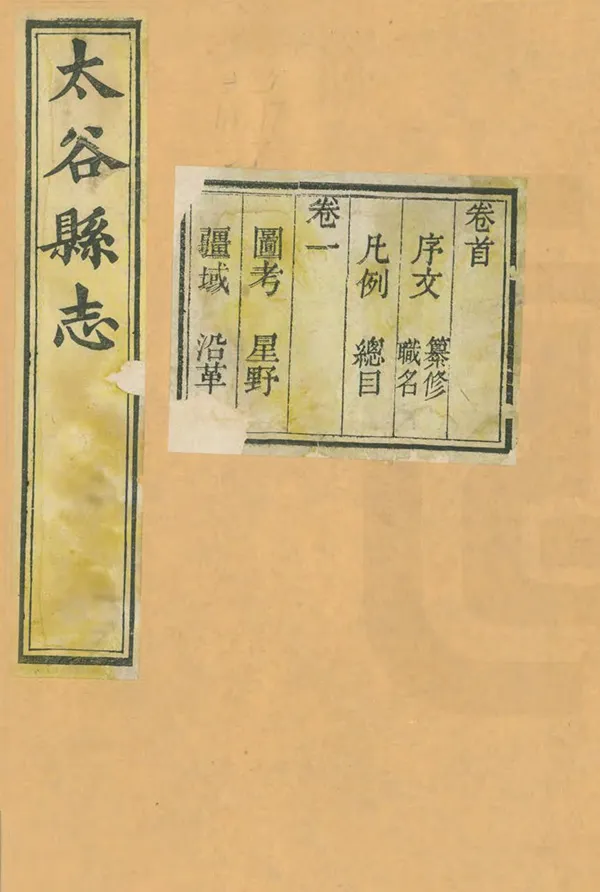 太谷縣志
卷首
序文 纂修職名
凡例 總目
卷一
圖考 星野
疆域 沿革